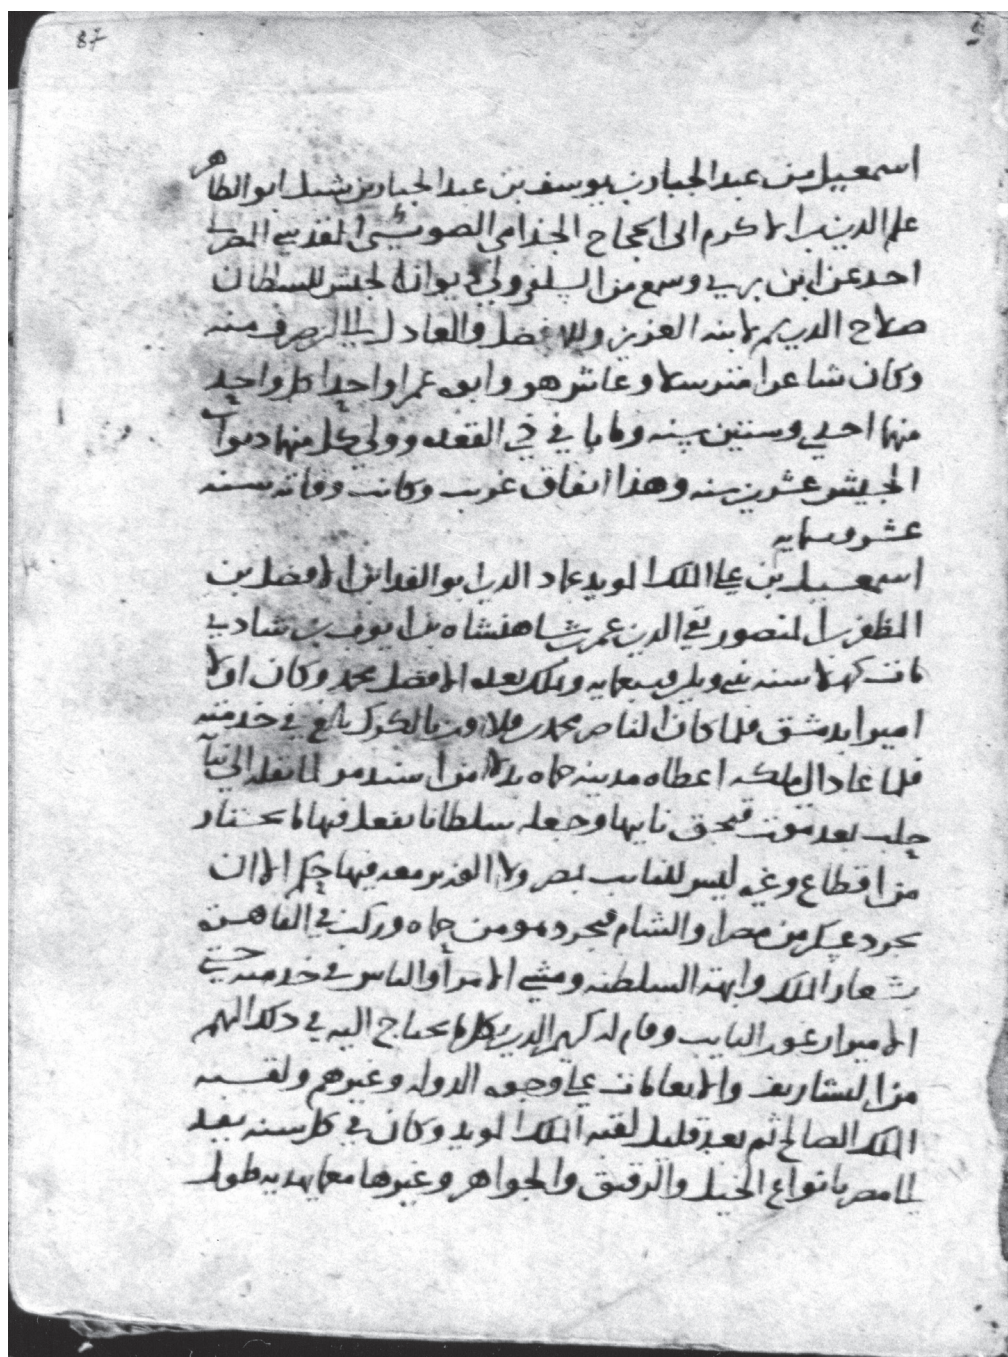 87
اسمعيل بن عبد الجبار بن يوسف بن عبد الجبار بن شبل ابو الطاهر
علم الدين بن الاكرم ابى الحجاج الجذامى الصويتى المقدسي المصرى
احد عن ابن بري وسمع من السلفي وولي ديوان الجيش للسلطان
صلاح الدين ثم لابنه العزيز وللافضل والعادل الى ان صرف منه
وكان شاعرا مترسلا وعاش هو وابوه عمرا واحدا كل واحد
منهما احدى وستين سنه وماتا في ذي القعده وولي كل منهما ديوان
الجيش عشرين سنه وهذا اتفاق غريب وكانت وفاته سنه
عشر وستمايه
اسمعيل بن علي الملك المويد عماد الدين ابو الفدا ابن الافضل بن
المظفر بن المنصور تقي الدين عمر بن شاهنشاه بن ايوب بن شادي
مات كهلا سنه اثنين وثلثين وسبعمايه وملك بعده الافضل محمد وكان اولا
اميرا بدمشق فلما كان الناصر محمد بن قلاوون بالكرك بالغ في خدمته
فلما عاد الى ملكه اعطاه مدينه حماه بدلا من اسندمر لما نقله الى نيابة
حلب بعد موت قبجق نايبها وجعله سلطانا يفعل فيها ما يختار
من اقطاع وغيره ليس للنايب بمصر ولا الوزير معه فيها حكم الا ان
يجرد عسكر من مصر والشام فيجرد هو من حماه وركب في القاهرة
بشعار الملك وابهة السلطنه ومشى الامرا والناس في خدمته حتى
الامير ارغون النايب وقام له كريم الدين بكل ما يحتاج اليه في ذلك المهم
من التشاريف والانعامات على وجوه الدوله وغيرهم ولقبه
الملك الصالح ثم بعد قليل لقبه الملك المويد وكان في كل سنه يفد
الى مصر بانواع الخيل والرقيق والجواهر وغيرها مما يهديه طول